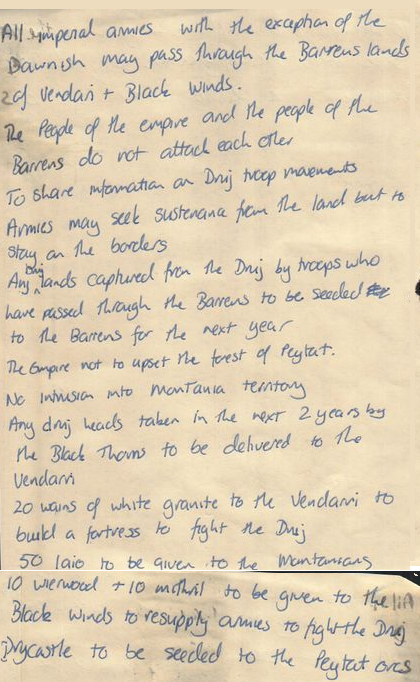 All imperial armies with the exception of the
Dawnish may pass through the Barrens lands
of Vendari + Black Winds.
The People of the empire and the people of the
Barrens do not attack each other
To share information on Druj troop movements
Armies may seek sustenance from the land but to
stay on the borders
Any Druj lands captured from the Druj by troops who
have passed through the Barrens to be seeded
to the Barrens for the next year
The Empire not to upset the forest of Peytat.
No intrusion into Montania territory
Any druj heads taken in the next 2 years by
the Black Thorns to be delivered to the
Vendarri
20 wains of white granite to the Vendarri to
build a fortress to fight the Druj
50 laio to be given to the Montanians
10 wierwood + 10 mithril to be given to the
Black winds to resupply armies to fight the Druj
Drycastle to be seeded to the Peytat orcs